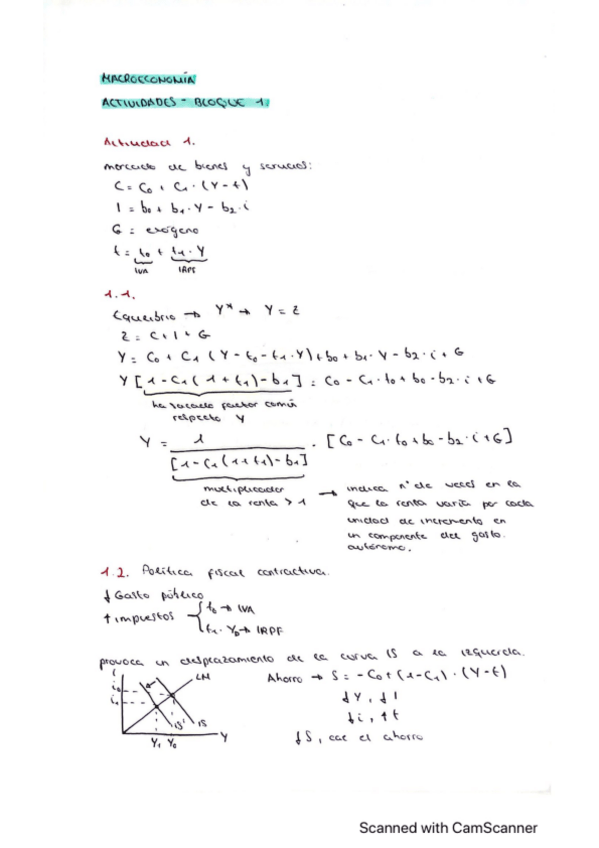 MACROECONOMÍA
ACTIVIDADES - BLOQUE 1.
Actividad 1.
mercado de bienes y servicios:
C = C₀ + C₁ · (Y - t)
I = b₀ + b₁ · Y - b₂ · i
G = exógeno
t = t₀ + t₁ · Y
IVA IRPF
1.1.
Equilibrio → Y* → Y = Z
Z = C + I + G
Y = C₀ + C₁ (Y - t₀ - t₁ · Y) + b₀ + b₁ · Y - b₂ · i + G
Y [1 - C₁ (1 + t₁) - b₁] = C₀ - C₁ · t₀ + b₀ - b₂ · i + G
ha sacado factor común
respecto Y
Y = 1 / [1 - C₁ (1 + t₁) - b₁] · [C₀ - C₁ · t₀ + b₀ - b₂ · i + G]
multiplicador
de la renta > 1
→ indica nº de veces en la
que la renta varía por cada
unidad de incremento en
un componente del gasto
autónomo.
1.2. Política fiscal contractiva.
↓ Gasto público
↑ impuestos { t₀ → IVA
t₁ · Y₀ → IRPF
provoca un desplazamiento de la curva IS a la izquierda.
i
i₀
i₁
LM
IS' IS
Y₁ Y₀
Y
Ahorro → S = -C₀ + (1 - C₁) · (Y - t)
↓Y, ↓I
↓i, ↑t
↓S, cae el ahorro
Scanned with CamScanner